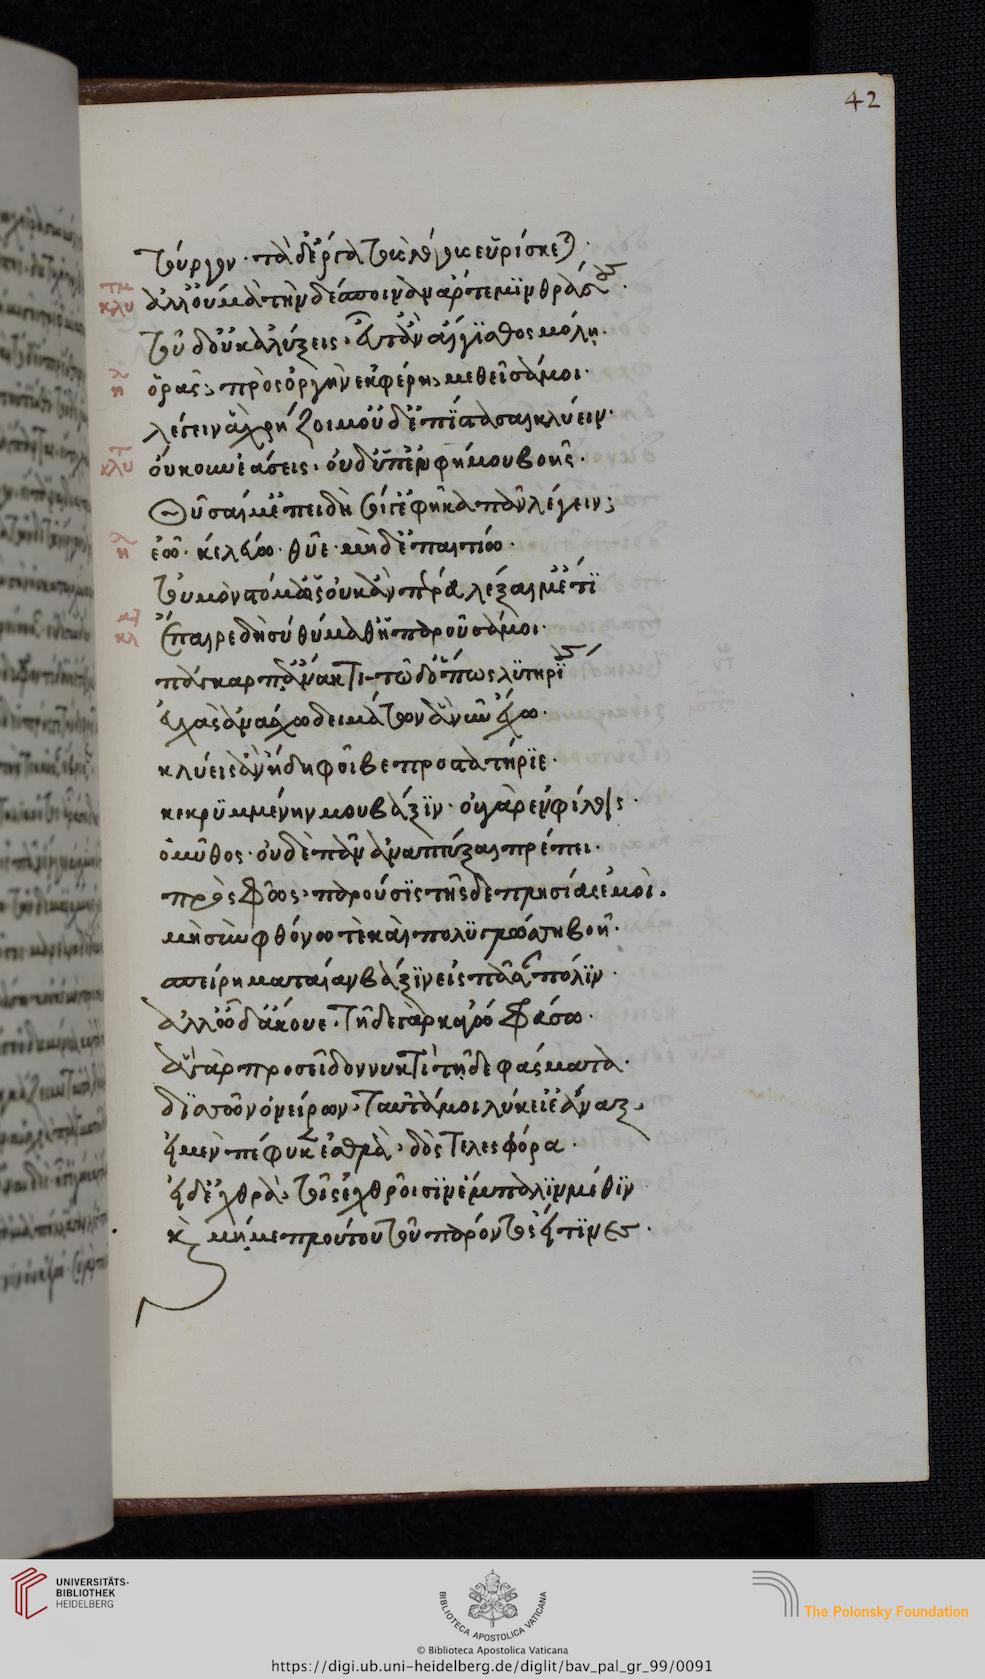 42
τοὔργον· τὰ δ' ἔργα τοὺς λόγους εὑρίσκεται·
κλυτ ἀλλ' οὐ μὰ τὴν δέσποιναν ἄρτεμιν θράσους·
τοῦδ' οὐκ ἀλύξεις, εὖτ' ἂν αἴγισθος μόλῃ·
ηλ ὁρᾷς; πρὸς ὀργὴν ἐκφέρῃ, μεθεῖσά μοι
λέγειν ἃ χρῄζοιμ' οὐδ' ἐπίστασαι κλύειν·
κλυτ οὔκουν ἐάσεις, οὐδ' ὑπ' εὐφήμου βοῆς·
θῦσαί μ' ἐπειδὴ σοί γ' ἐφῆκα πᾶν λέγειν;
ηλ ἐῶ· κελεύω· θῦε· μηδ' ἐπαιτιῶ
τοὐμὸν στόμ' ὡς οὐκ ἂν πέρα λέξαιμ' ἔτι
κλ ἔπαιρε δὴ σὺ θύμαθ' ἡ παροῦσά μοι·
πάγκαρπ' ἄνακτι τῷδ' ὅπως λυτηρίους
εὐχὰς ἀνάσχω δειμάτων ἃ νῦν ἔχω·
κλύεις ἂν ἤδη φοῖβε προστατήριε·
κεκρυμμένην μου βάξιν· οὐ γὰρ ἐν φίλοις·
ὁ μῦθος· οὐδὲ πᾶν ἀναπτύξαι πρέπει·
πρὸς φῶς· παρούσης τῆσδε πλησίας ἐμοί·
μὴ σὺν φθόνῳ τε καὶ πολυγλώσσῳ βοῇ·
σπείρῃ ματαίαν βάξιν εἰς πᾶσαν πόλιν·
ἀλλ' ὧδ' ἄκουε· τῇδε γὰρ κἀγὼ φράσω·
ἃ γὰρ προσεῖδον νυκτὶ τῇδε φάσματα·
δισσῶν ὀνείρων, ταῦτά μοι λύκει' ἄναξ,
εἰ μὲν πέφυκεν ἐσθλὰ, δὸς τελεσφόρα·
εἰ δ' ἐχθρὰ, τοῖς ἐχθροῖσιν ἔμπαλιν μέθιν
κ μή με πλούτου τοῦ παρόντος εἴ τινες·
UNIVERSITÄTS-
BIBLIOTHEK
HEIDELBERG
BIBLIOTECA APOSTOLICA VATICANA
The Polonsky Foundation
© Biblioteca Apostolica Vaticana
https://digi.ub.uni-heidelberg.de/diglit/bav_pal_gr_99/0091